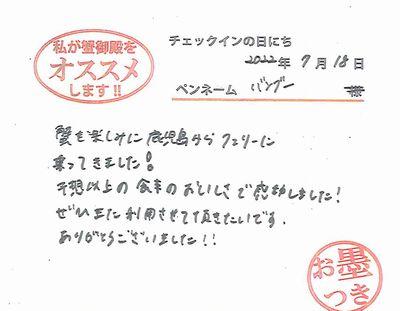 私が蟹御殿を
オススメ
します!!
チェックインの日にち
2022年 7月 18日
ペンネーム バンブー 様
蟹を楽しみに鹿児島からフェリーに
乗ってきました!
予想以上の食事のおいしさで感動しました!
ぜひまた利用させて頂きたいです。
ありがとうございました!!
お墨
つき